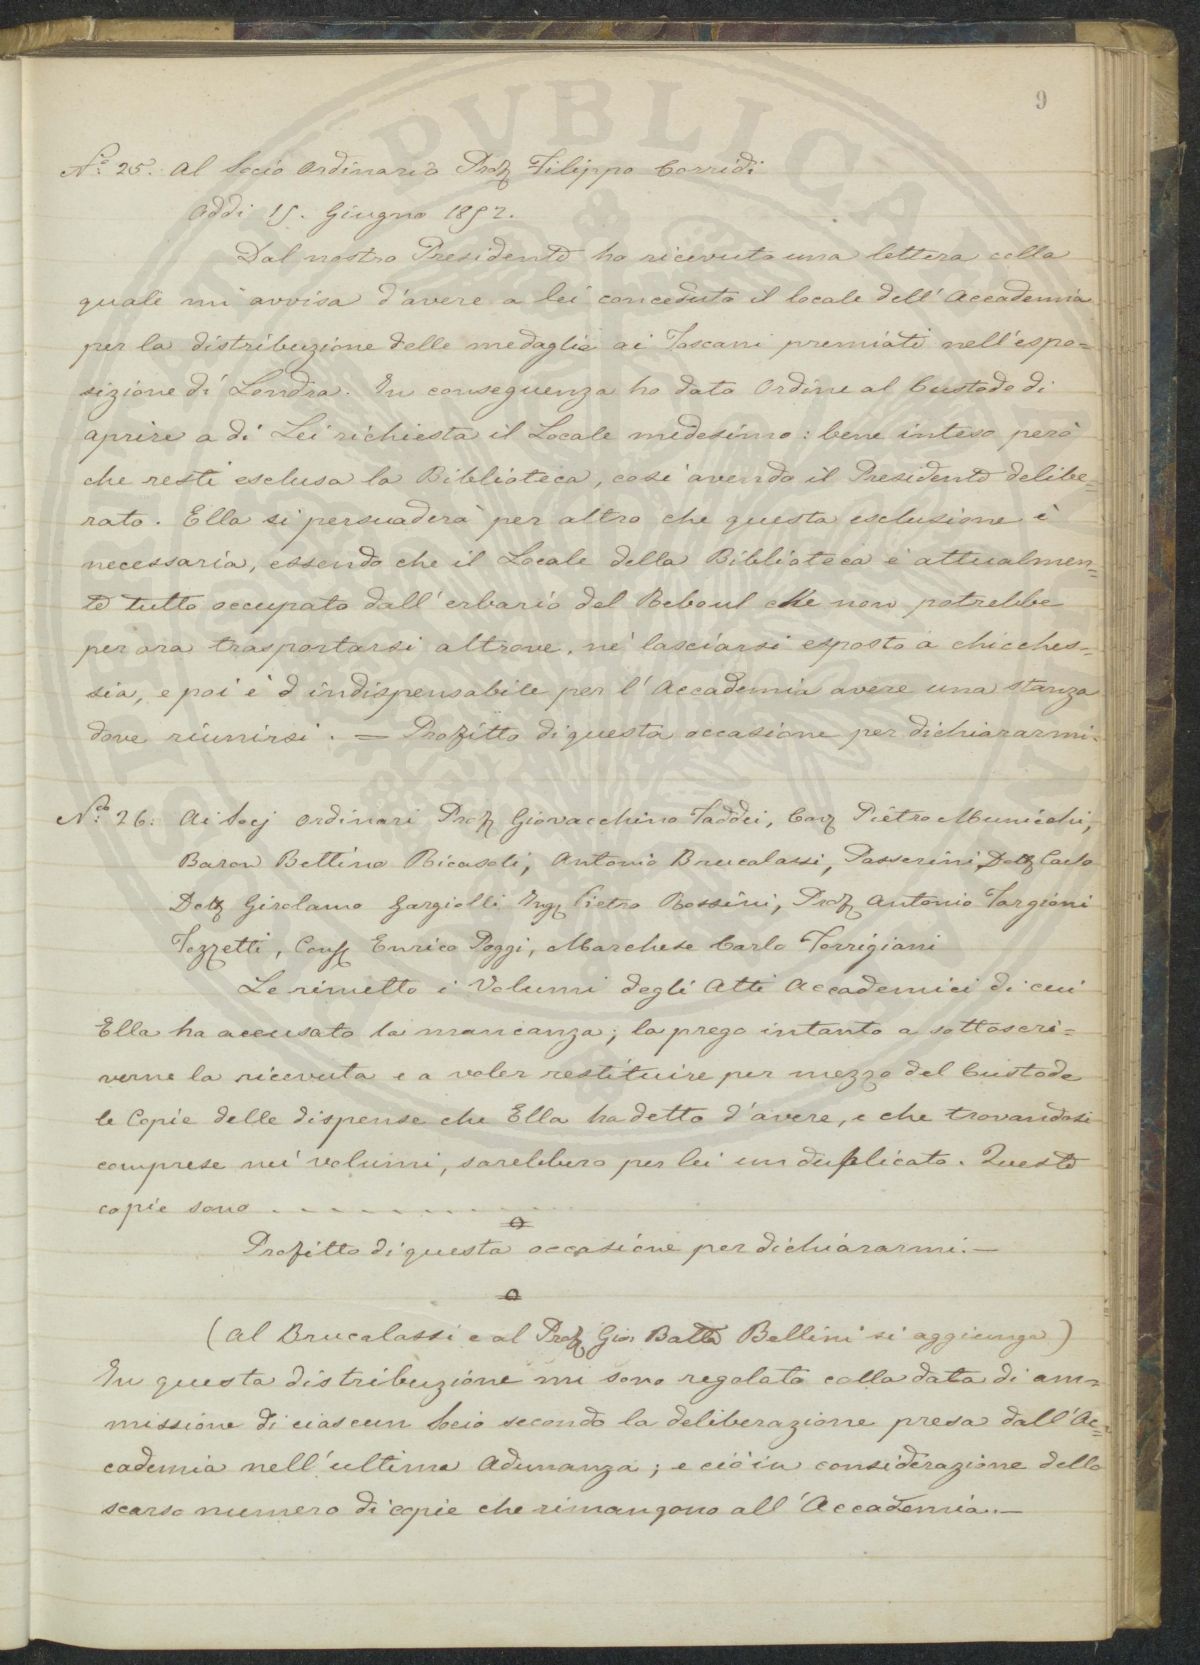 9
N.º 25. Al Socio Ordinario Prof. Filippo Corridi
Addi 15. Giugno 1852.
Dal nostro Presidente ho ricevuto una lettera colla
quale mi avvisa d'avere a lei conceduto il locale dell'Accademia
per la distribuzione delle medaglie ai Toscani premiati nell'espo=
sizione di Londra. In conseguenza ho dato Ordine al Custode di
aprire a di Lei richiesta il Locale medesimo: bene inteso però
che resti esclusa la Biblioteca, così avendo il Presidente delibe=
rato. Ella si persuaderà per altro che questa esclusione è
necessaria, essendo che il Locale della Biblioteca è attualmen=
te tutto occupato dall'erbario del Reboul che non potrebbe
per ora trasportarsi altrove, nè lasciarsi esposto a chicches=
sia, e poi è d indispensabile per l'Accademia avere una stanza
dove riunirsi. = Profitto di questa occasione per dichiararmi.
N.º 26: Ai Socj Ordinari Prof. Giovacchino Taddei, Cav. Pietro Municchi,
Baron Bettino Ricasoli, Antonio Brucalassi, Passerini, Dott. Carlo
Dott. Girolamo Gargiolli Ing. Pietro Rossini, Prof. Antonio Targioni
Tozzetti, Cons. Enrico Poggi, Marchese Carlo Torrigiani
Le rimetto i Volumi degli Atti Accademici di cui
Ella ha accusato la mancanza; la prego intanto a sottoscri=
verne la ricevuta e a voler restituire per mezzo del Custode
le Copie delle dispense che Ella ha detto d'avere, e che trovandosi
comprese nei volumi, sarebbero per lei un duplicato. Queste
copie sono . . . . . . . . . . . .
Profitto di questa occasione per dichiararmi. —
(Al Brucalassi e al Prof. Gio. Batta Bellini si aggiunga)
In questa distribuzione mi sono regolato colla data di am=
missione di ciascun Socio secondo la deliberazione presa dall'Ac=
cademia nell'ultima Adunanza; e ciò in considerazione dello
scarso numero di copie che rimangono all'Accademia. —
PVBLICA